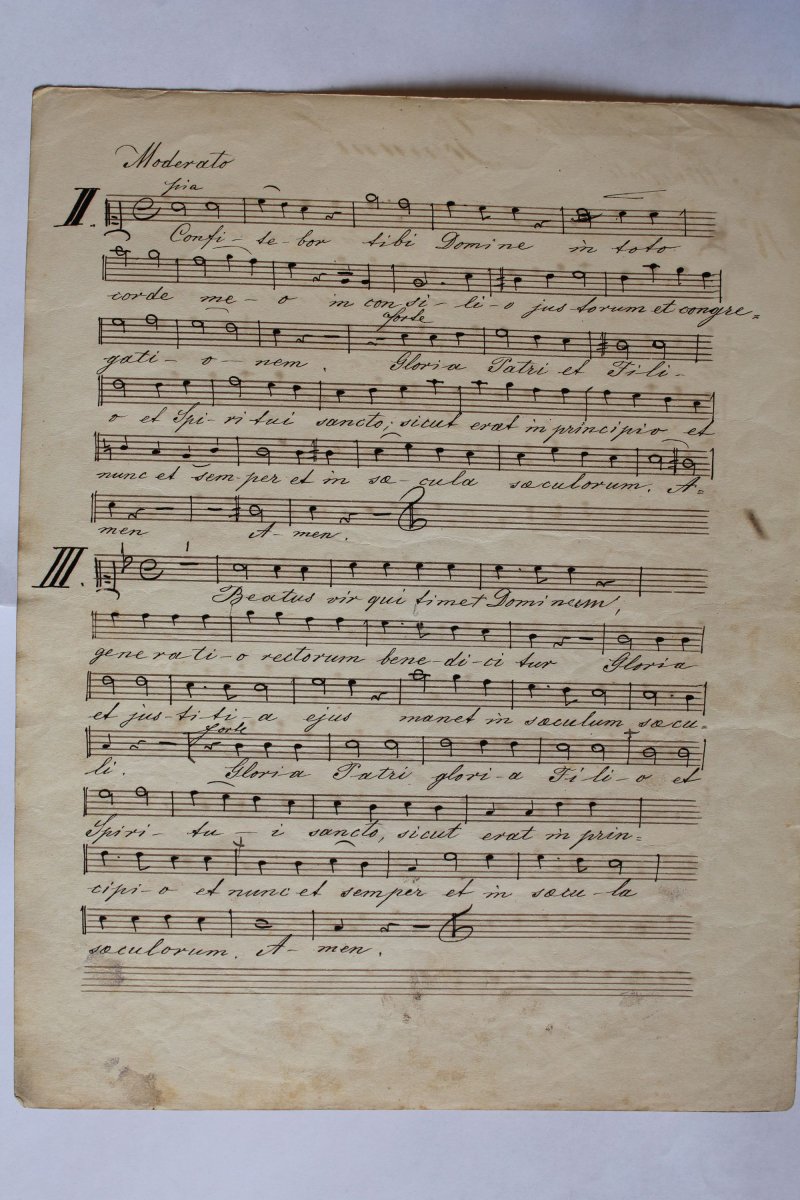 Moderato
pia
II.
Confi - te - bor tibi Domine in toto
corde me - o in con si - li - o jus torum et congre =
forte
gati - o - nem. Gloria Patri et Fili -
o et Spi - ri tui sancto; sicut erat in principio et
nunc et sem - per et in sæ - cula sæculorum. A =
men A - men.
III.
1
Beatus vir qui timet Dominum,
gene rati - o rectorum bene - di - ci tur Gloria
et jus - ti ti - a ejus manet in sæculum sæcu -
forte
li. Gloria Patri glori - a Fili - o et
Spiri - tu - i sancto, sicut erat in prin =
cipi - o et nunc et semper et in sæcu - la
sæculorum. A - men.